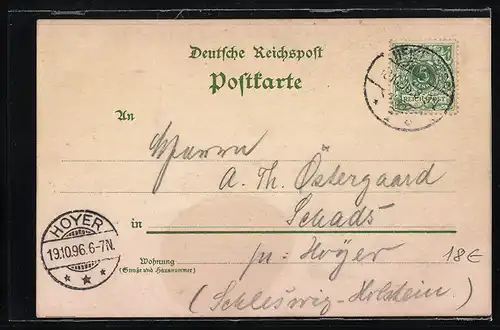 Deutsche Reichspost
Postkarte
An
Herrn
A. Th. Östergaard
in Schads
pr. Hoyer
(Schleswig-Holstein.)
Wohnung
(Straße und Hausnummer)
HOYER
19.10.96.6-7N.
REICHSPOST
5
18€